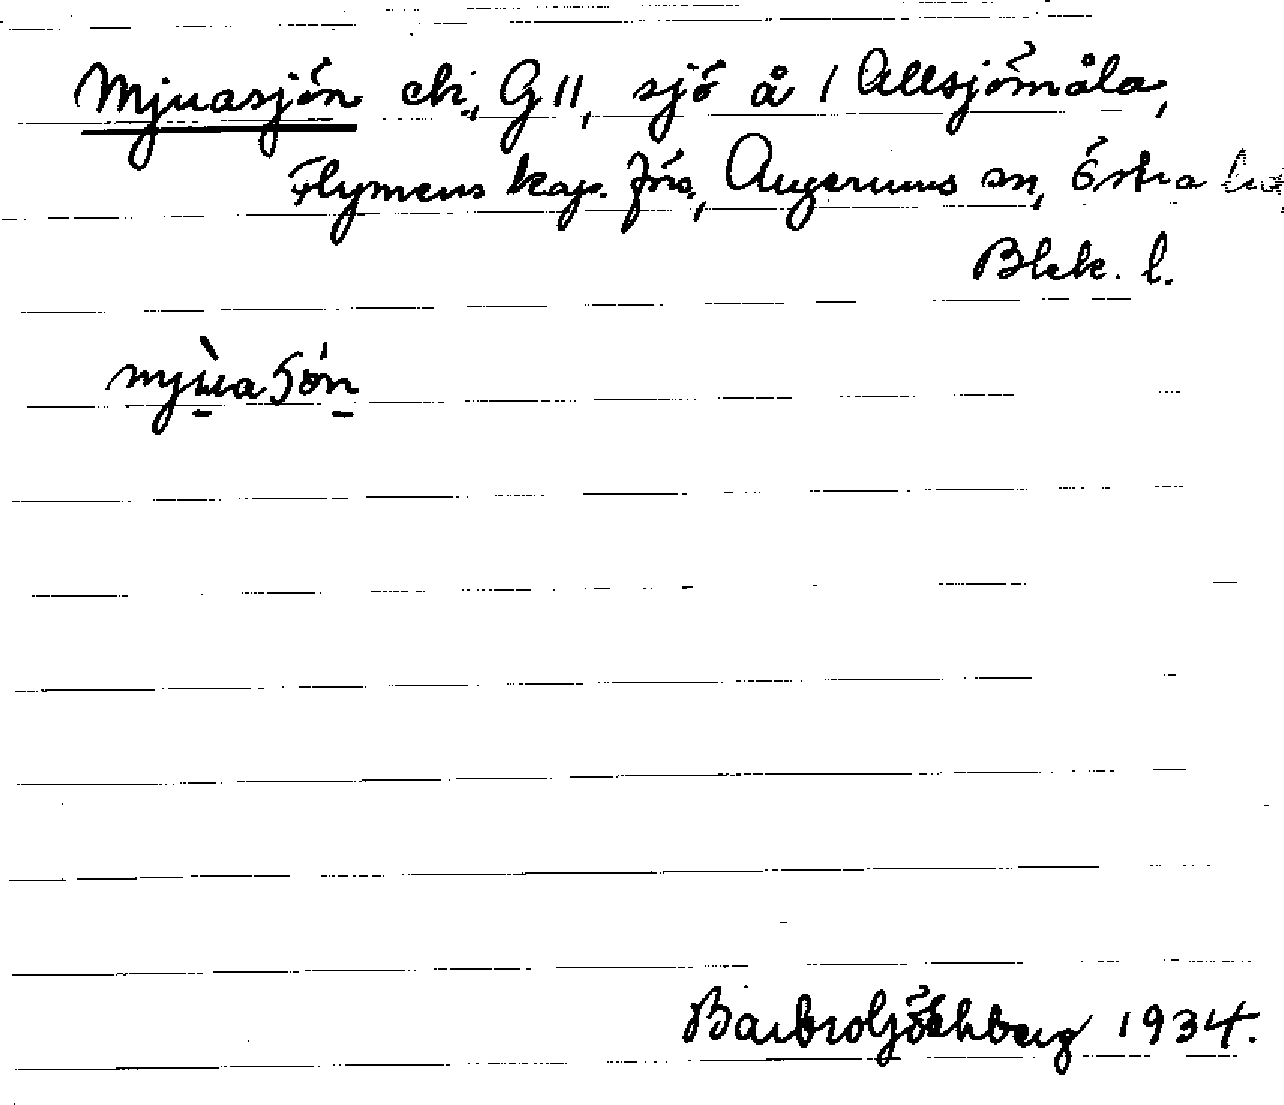 Mjuasjön ek., G 11, sjö å 1 Allsjömåla,
Flymens kap. förs., Augerums sn, Östra hd
Blek. l.
mjùa sǿn
Barbro 1934.